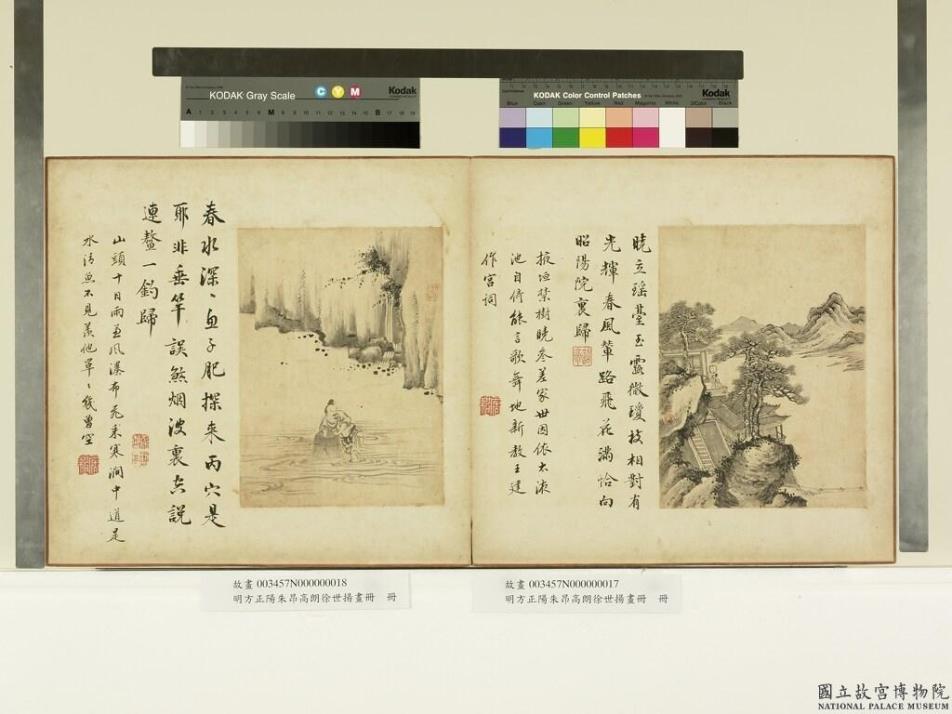 KODAK Gray Scale
C Y M
Kodak
A 1 2 3 4 5 6 M 8 9 10 11 12 13 14 15 B 17 18 19
KODAK Color Control Patches
Kodak
Blue Cyan Green Yellow Red Magenta White 3/Color Black
曉立瑤臺玉露微瓊枝相對有
光輝春風輦路飛花滿恰向
昭陽院裏歸
掖垣琹樹曉參差家世因依太液
池自脩能言歌舞地新教王建
作宮詞
春水深〻魚子肥探來丙穴是
耶非垂竿誤煞烟波裏真說
連鰲一釣歸
山頭十日雨兼風瀑布飛來寒澗中道是
水清魚不見羨他罩〻幾曾空
故畫 003457N000000018
明方正陽朱昂高朗徐世揚畫冊 冊
故畫 003457N000000017
明方正陽朱昂高朗徐世揚畫冊 冊
國立故宮博物院
NATIONAL PALACE MUSEUM